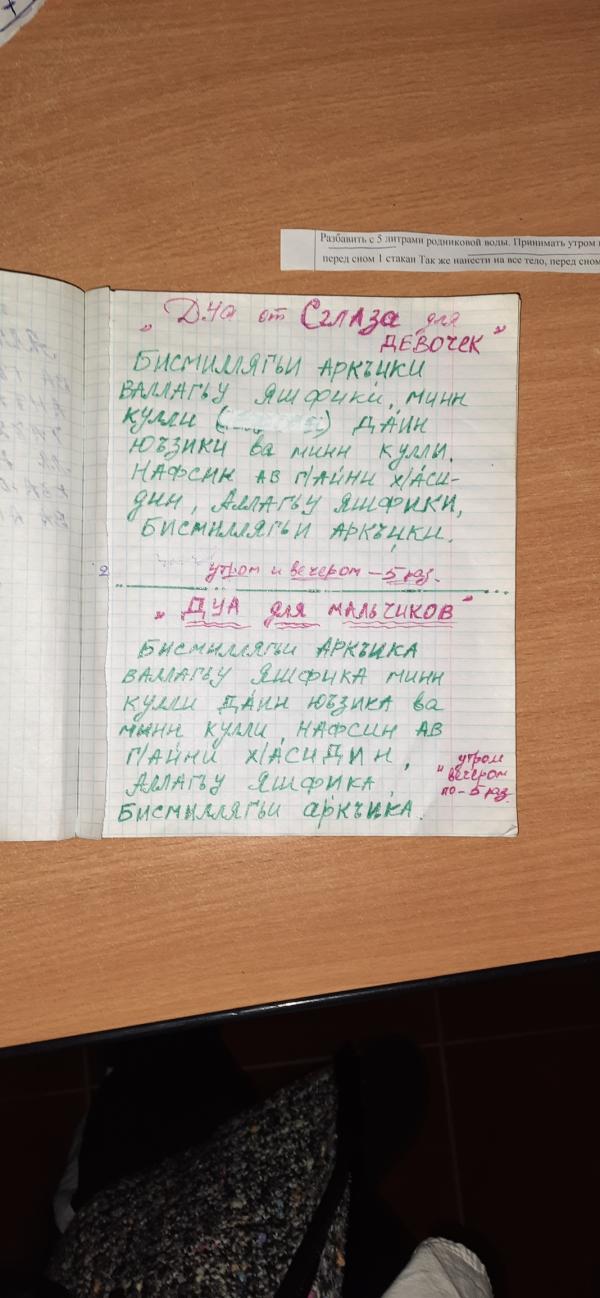 Разбавить с 5 литрами родниковой воды. Принимать утром
перед сном 1 стакан Так же нанести на все тело, перед сном
„ Дуа от Сглаза для
ДЕВОЧЕК"
Бисмиллягьи аркъики
валлагьу яшфики, минн
кулли ( ) дáин
юъзики ва минн кулли.
нафсин ав гIайни хIáси-
дин, Аллагьу яшфики,
Бисмиллягьи аркъики.
2
утром и вечером – 5 раз.
„ Дуа для мальчиков "
Бисмиллягьи Аркъика
валлагьу яшфика минн
кулли дáин юъзика ва
минн кулли, нафсин ав
гIайни хIáсидин,
Аллагьу яшфика,
Бисмиллягьи аркъика.
„ утром
вечером
по – 5 раз.